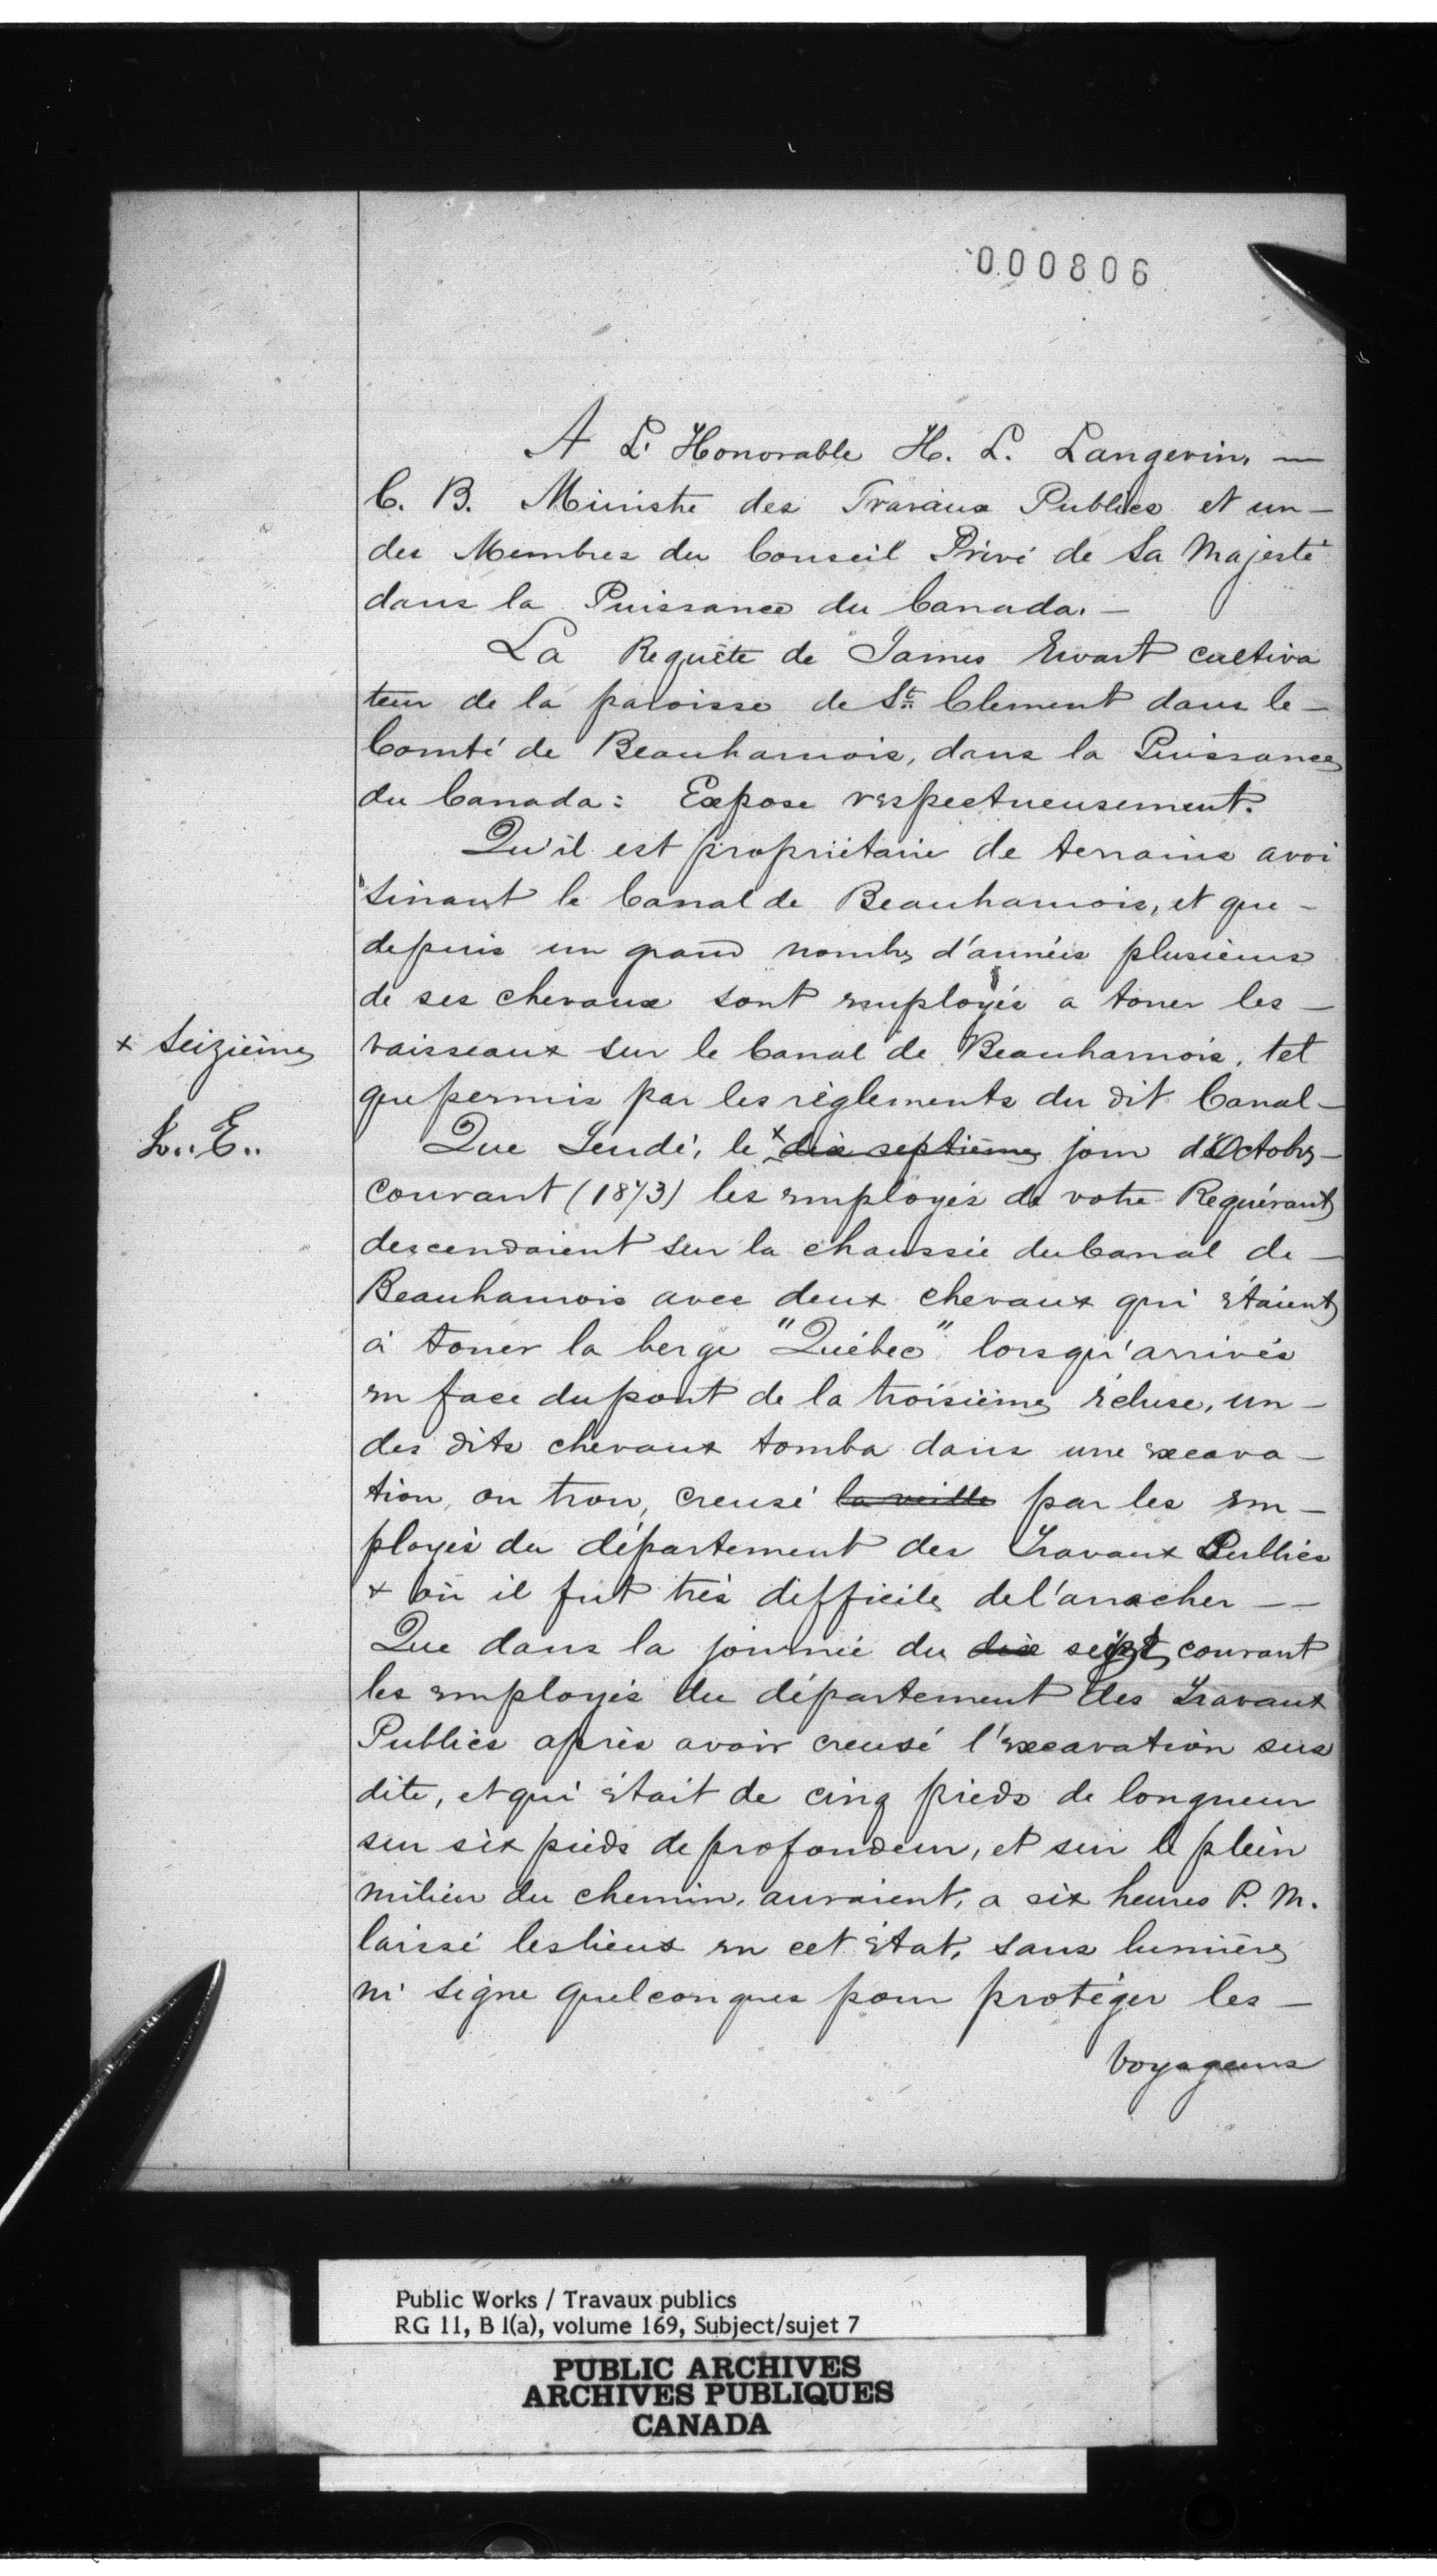 000806
A L'Honorable H. L. Langevin, —
C. B. Ministre des Travaux Publics et un —
des Membres du Conseil Privé de Sa Majesté
dans la Puissance du Canada. —
La Requête de James Ewart cultiva
teur de la paroisse de St. Clement dans le —
Comté de Beauharnois, dans la Puissance
du Canada : Expose respectueusement.
Qu'il est propriétaire de terrains avoi
sinant le Canal de Beauharnois, et que —
depuis un grand nombre d'années plusieurs
de ses chevaux sont employés a toner les —
vaisseaux sur le Canal de Beauharnois, tel
que permis par les règlements du dit Canal —
x Seizième
L.. E..
Que Jeudi, le x dix septième jour d'Octobre —
courant (1873) les employés de votre Requérant
descendaient sur la chaussée du Canal de —
Beauharnois avec deux chevaux qui étaient
à toner la berge "Québec" lorsqu'arrivés
en face du pont de la troisième écluse, un —
des dits chevaux tomba dans une excava —
tion, ou trou, creusé la veille par les em —
ployés du département des Travaux Publics
+ où il fut très difficile de l'arracher — —
Que dans la journée du dix seize courant
les employés du département des Travaux
Publics après avoir creusé l'excavation sus
dite, et qui était de cinq pieds de longueur
sur six pieds de profondeur, et sur le plein
milieu du chemin, auraient, a six heures P. M.
laissé les lieux en cet état, sans lumière
ni signe quelconques pour protéger les —
voyageurs
Public Works / Travaux publics
RG 11, B 1(a), volume 169, Subject/sujet 7
PUBLIC ARCHIVES
ARCHIVES PUBLIQUES
CANADA